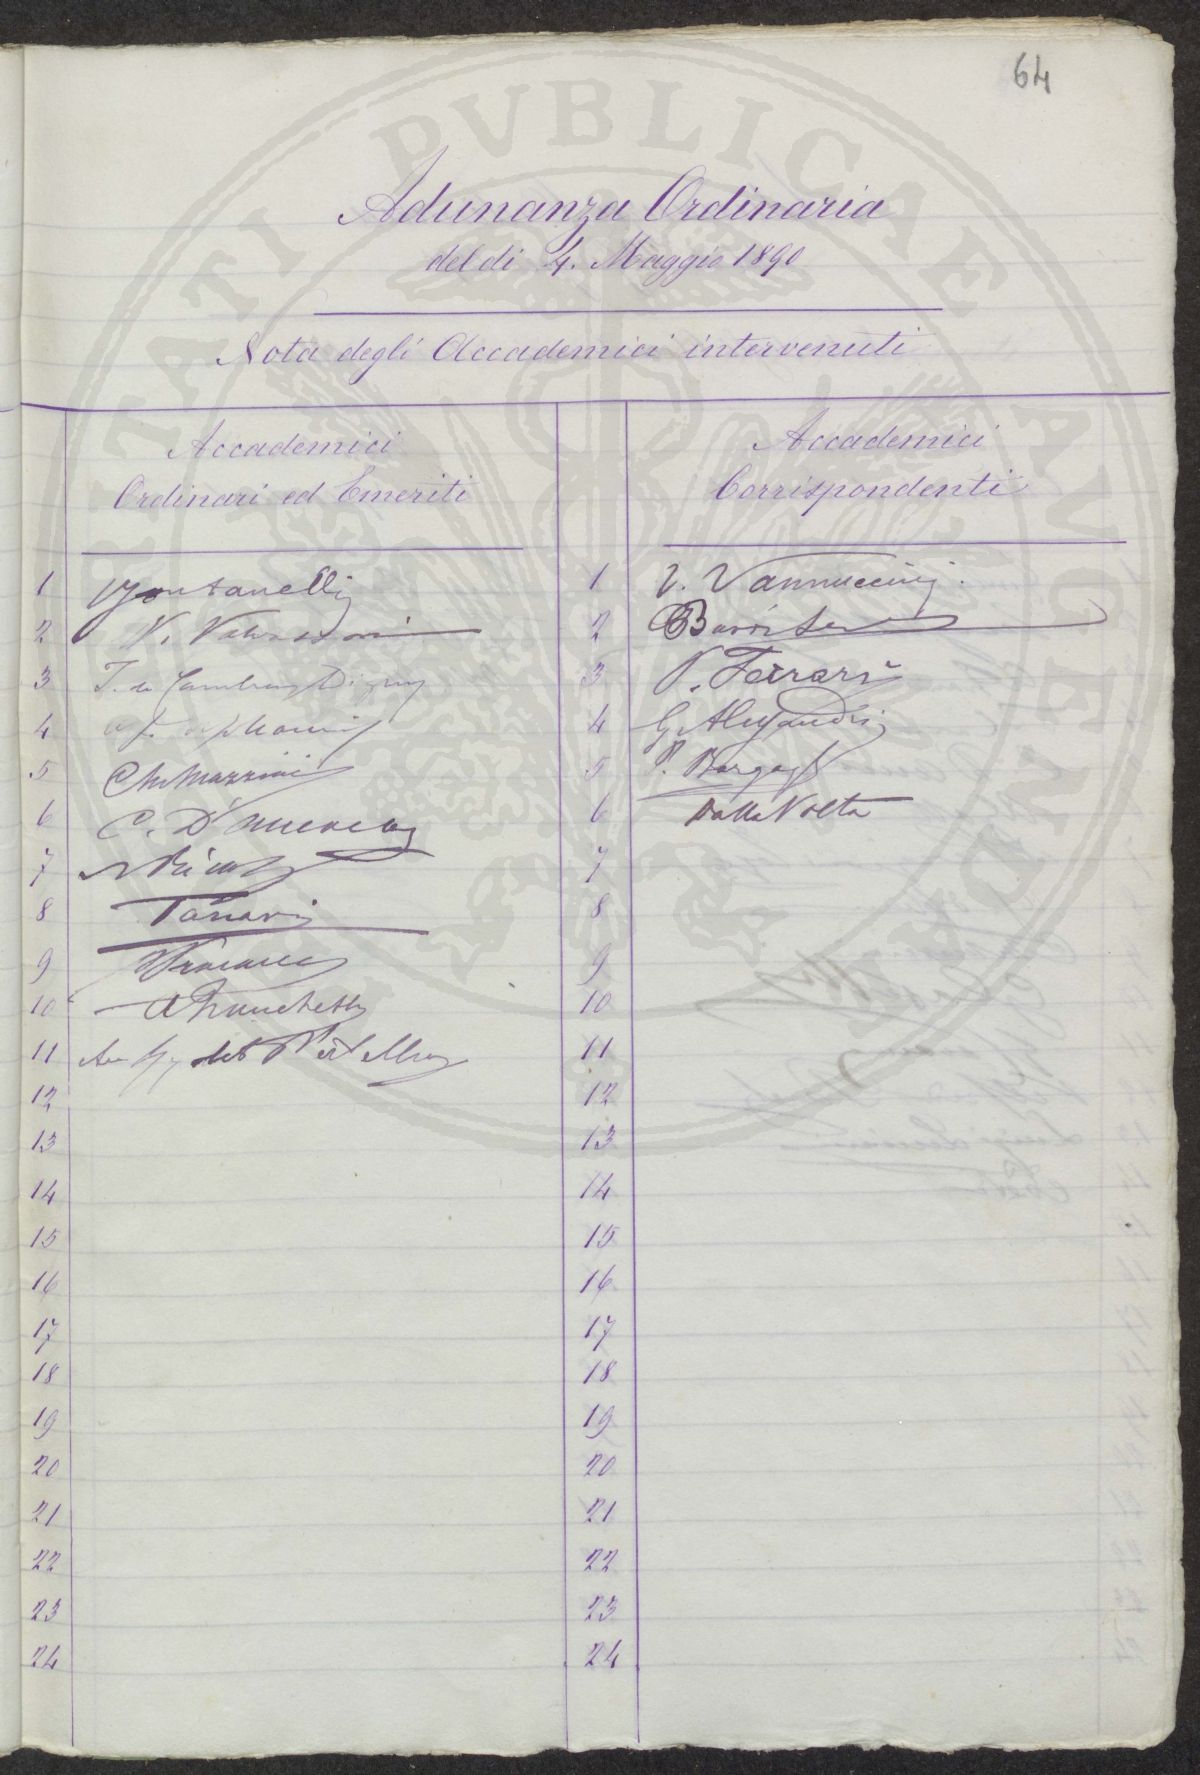 64
PROSPERITATI PVBLICAE AVGENDAE
Adunanza Ordinaria
del dì 4. Maggio 1890
Nota degli Accademici intervenuti
Accademici
Ordinari ed Emeriti
1 Fontanelli
2
3 T. de Cambray Digny
4
5 C M Mazzini
6
7
8 Tanari
9
10 A Franchetti
11
12
13
14
15
16
17
18
19
20
21
22
23
24
Accademici
Corrispondenti
1 V. Vannuccini
2
3 P. Ferrari
4 G. Alessandri
5 P. Bargagli
6 Dalla Volta
7
8
9
10
11
12
13
14
15
16
17
18
19
20
21
22
23
24